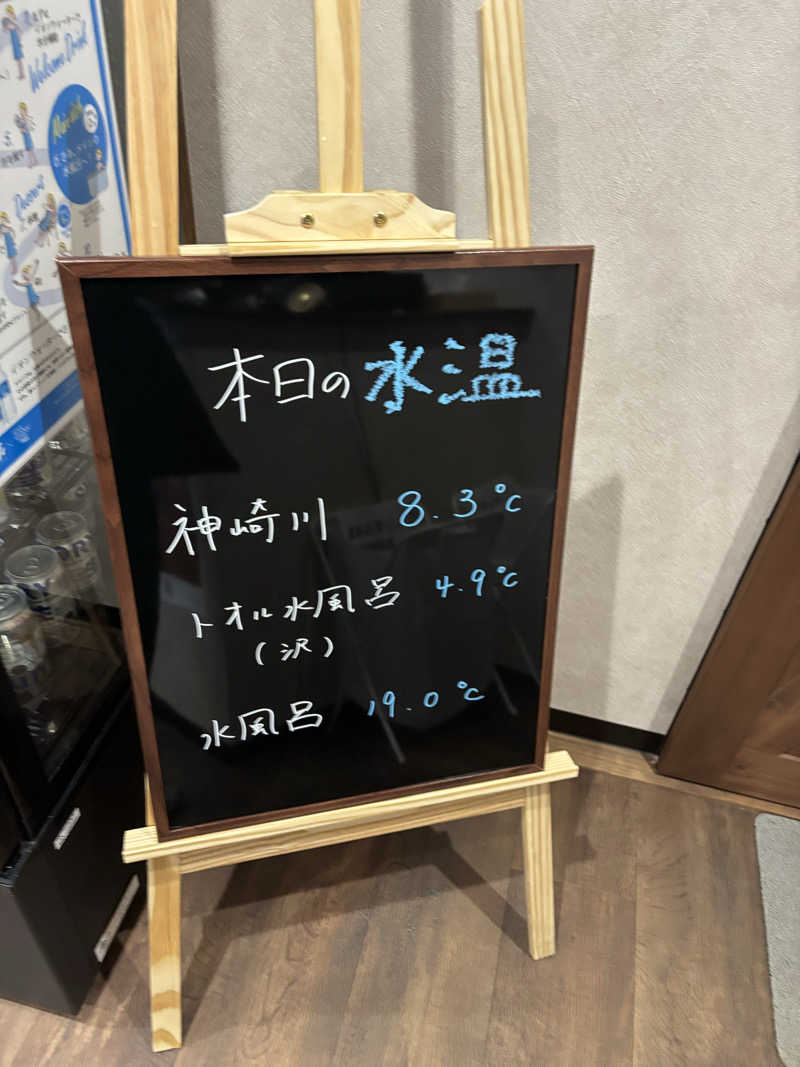 Welcome Drink
本日の水温
神崎川 8.3℃
トオル水風呂 4.9℃
(沢)
水風呂 19.0℃